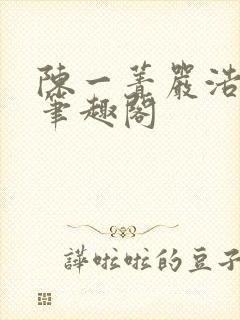 陳一菁嚴浩
筆趣閣
譁啦啦的豆子